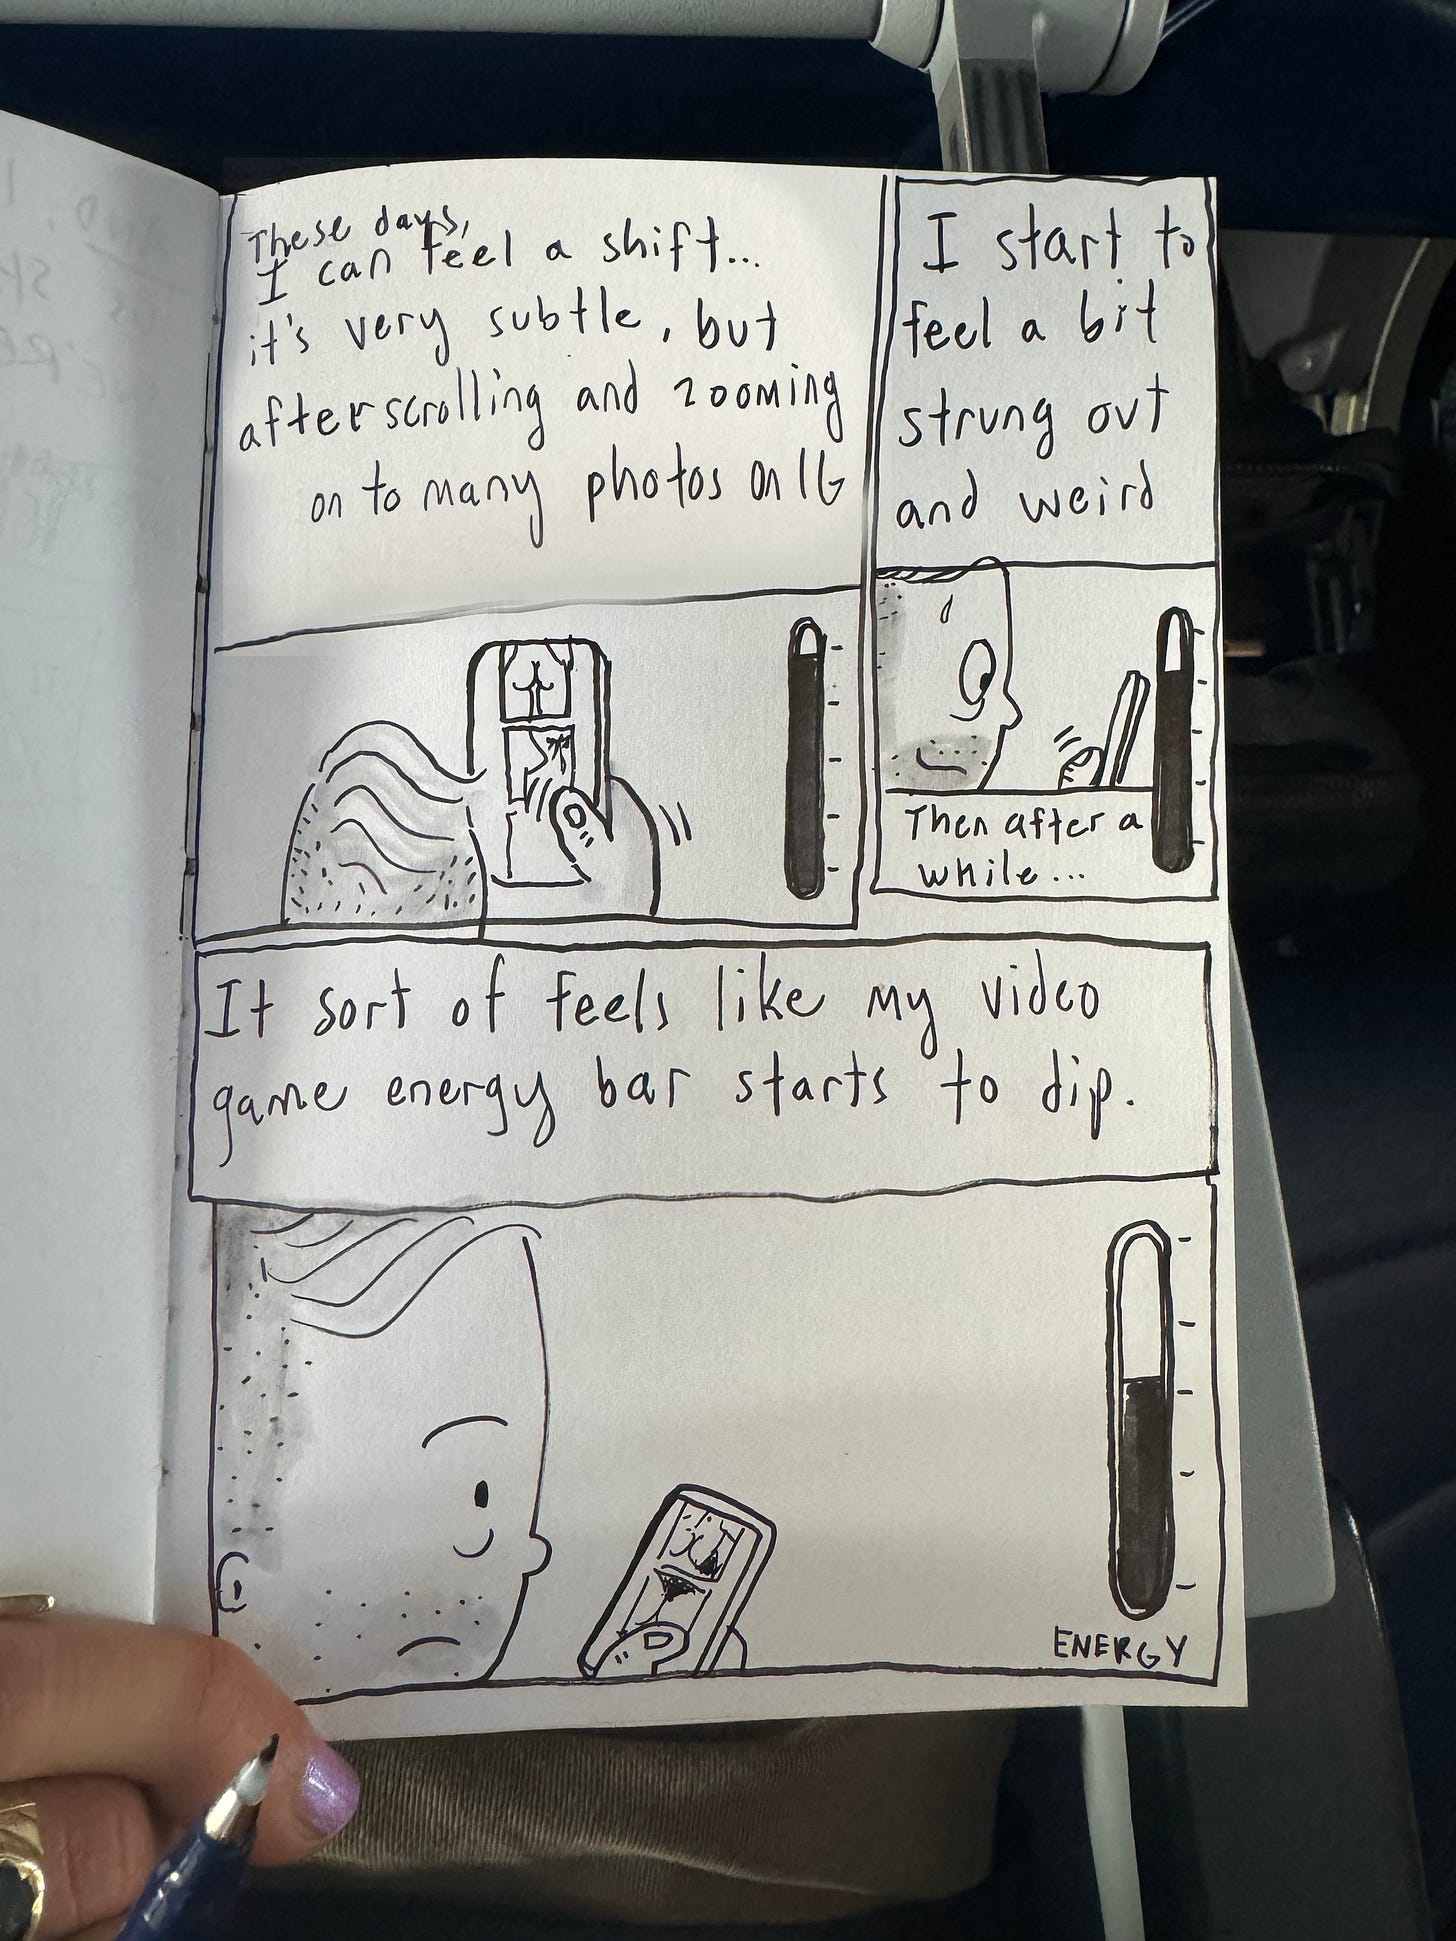 These days,
I can feel a shift...
it's very subtle, but
after scrolling and zooming
on to many photos on IG
I start to
feel a bit
strung out
and weird
Then after a
while...
It sort of feels like my video
game energy bar starts to dip.
ENERGY